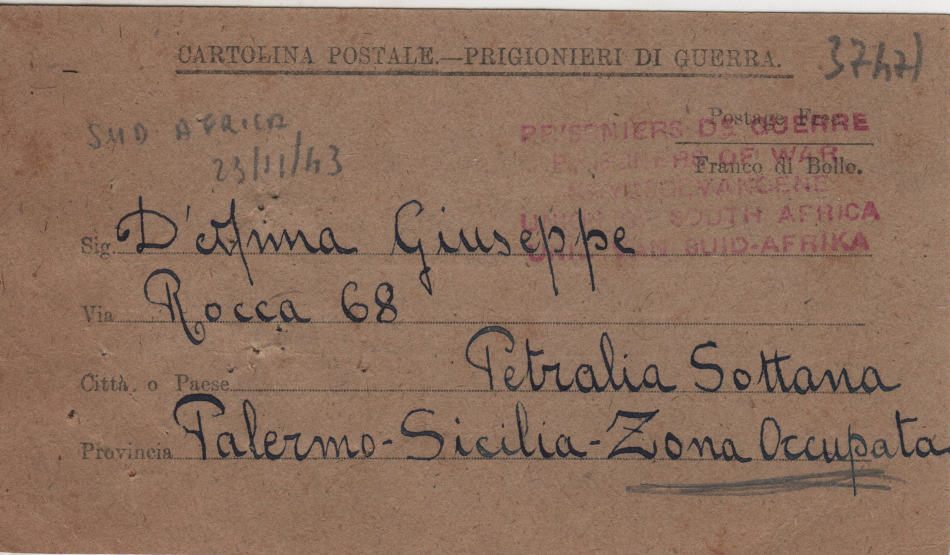 CARTOLINA POSTALE.—PRIGIONIERI DI GUERRA.
SUD AFRICA
23/11/43
Postage Free.
Franco di Bollo.
PRISONIERS DE GUERRE
PRISONERS OF WAR
KRYGSGEVANGENE
UNION OF SOUTH AFRICA
UNIE VAN SUID-AFRIKA
Sig. D'Anna Giuseppe
Via Rocca 68
Città o Paese Petralia Sottana
Provincia Palermo-Sicilia-Zona Occupata